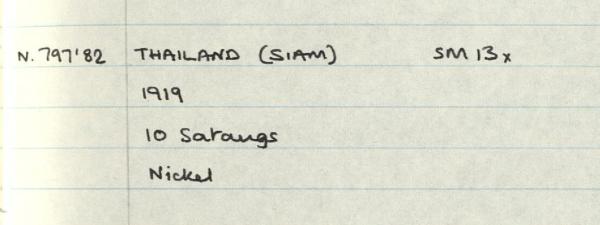 N. 797'82 THAILAND (SIAM) SM 13x
1919
10 Satangs
Nickel